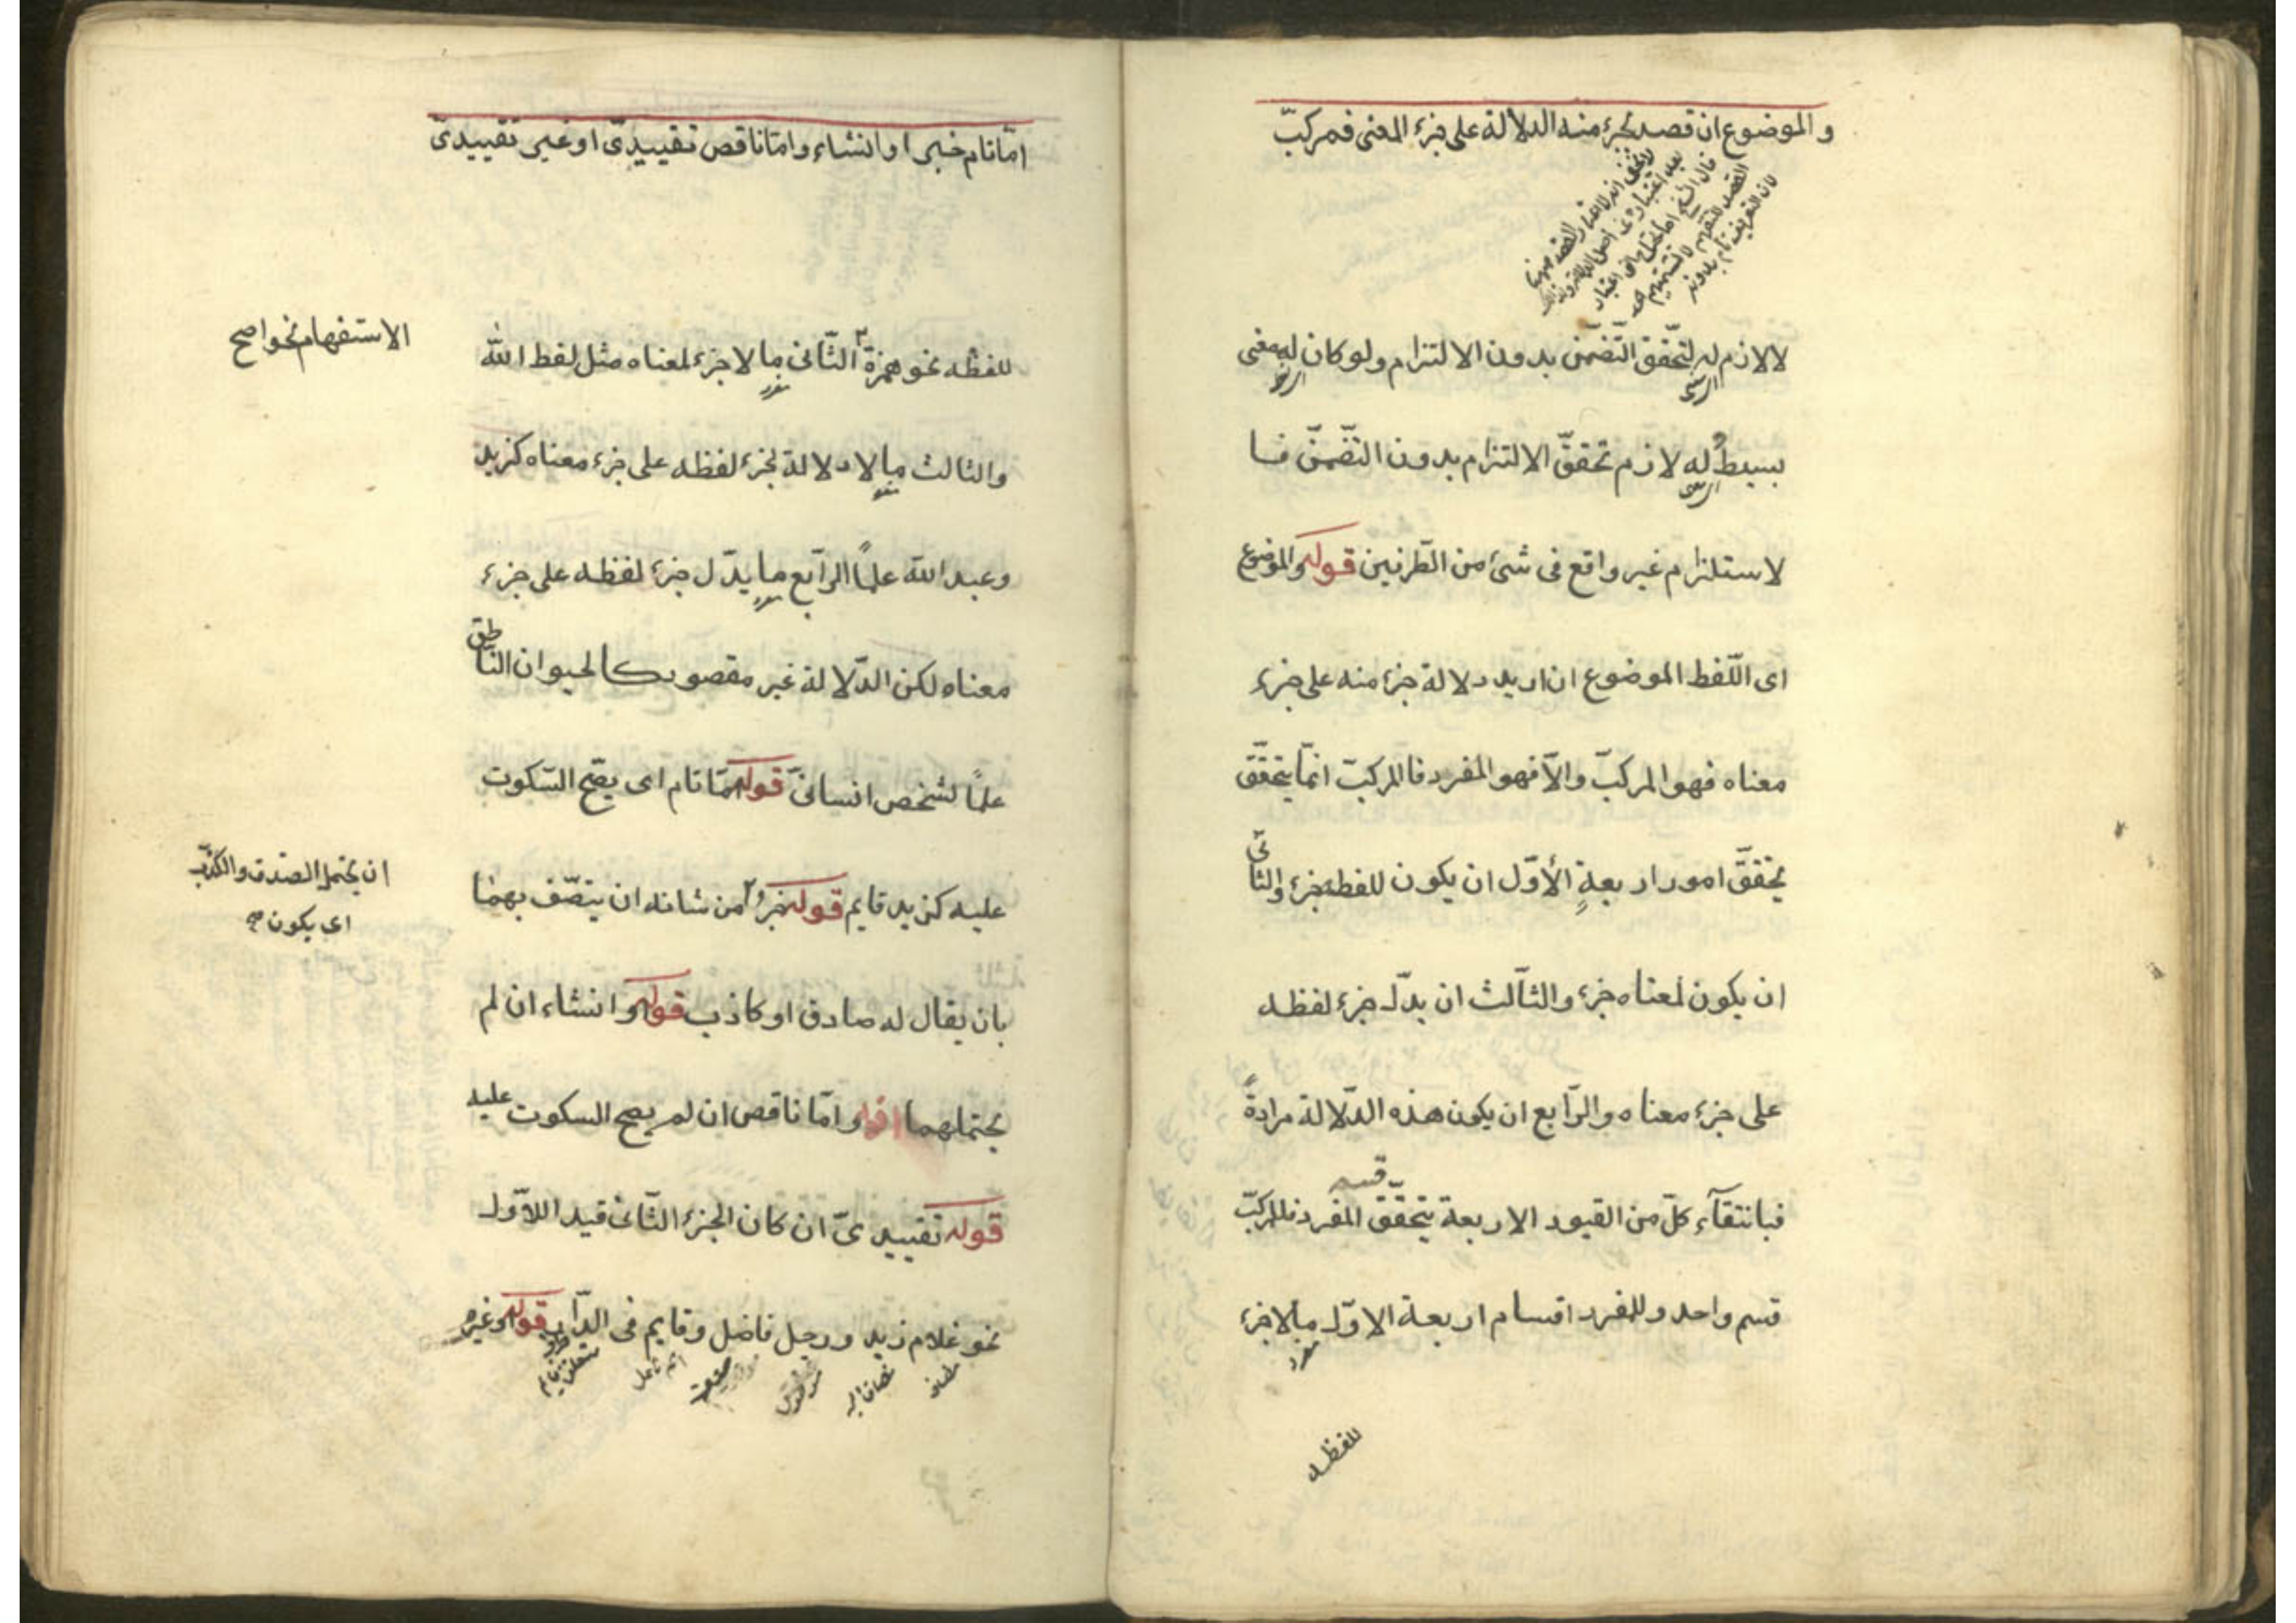 والموضوع ان قصد بجزء منه الدلالة على جزء المعنى فمركبّ
لا لازم له لتحّقق التّضمّن بدون الالتزام ولو كان له معنى
بسيطٌ له لازم تحققّ الالتزام بدون التضّمنّ فا
لاستلزام غير واقع فى شئ من الطّرفين قوله والموضوع
اى اللّفظ الموضوع ان اريد دلالة جزء منه على جزء
معناه فهو المركبّ والاّ فهو المفرد فالمركبّ انمّا يتحققّ
بتحققّ امور اربعةٍ الأوّل ان يكون للفظه جزء والثانى
ان يكون لمعناه جزء والثاّلث ان يدلّ جزء لفظه
على جزء معناه والرّابع ان يكون هذه الدّلالة مرادةً
فبانتقآء كلّ من القيود الاربعة يتحققّ المفرد فللمركبّ
قسم
قسم واحد وللمفرد اقسام اربعة الاوّل ما لا جزء
مفرد
للفظه
امّا تام خبر او انشاء وامّا ناقص تقييدىّ او غير تقييدىّ
للفظه نحو همزة الثّانى ما لا جزء لمعناه مثل لفظ اللّه
الاستفهام نحو اصح
والثالث ما لا دلالة لجزء لفظه على جزء معناه كزيد
وعبد اللّه علماً الرّابع ما يدّل جزء لفظه على جزء
معناه لكن الدّلالة غير مقصود كالحيوان الناطق
علماً لشخص انسانىّ قوله امّا تام اى يصّح السّكوت
عليه كزيد قايم قوله خبرٌ من شانه ان يتصّف بهما
ان يحتمل الصّدق والكذب
اى يكون صح
بان يقال له صادق او كاذب قوله وانشاء ان لم
يحتملهما قوله وامّا ناقص ان لم يصح السكوت عليه
قوله تقييدىّ ان كان الجزء الثّانى قيد اللاّول
نحو غلام زيد ورجل فاضل وقايم فى الدّار قوله وغيره
مضاف
مضاف اليه
موصوف
صفت
اسم فاعل
متعلق بقايم